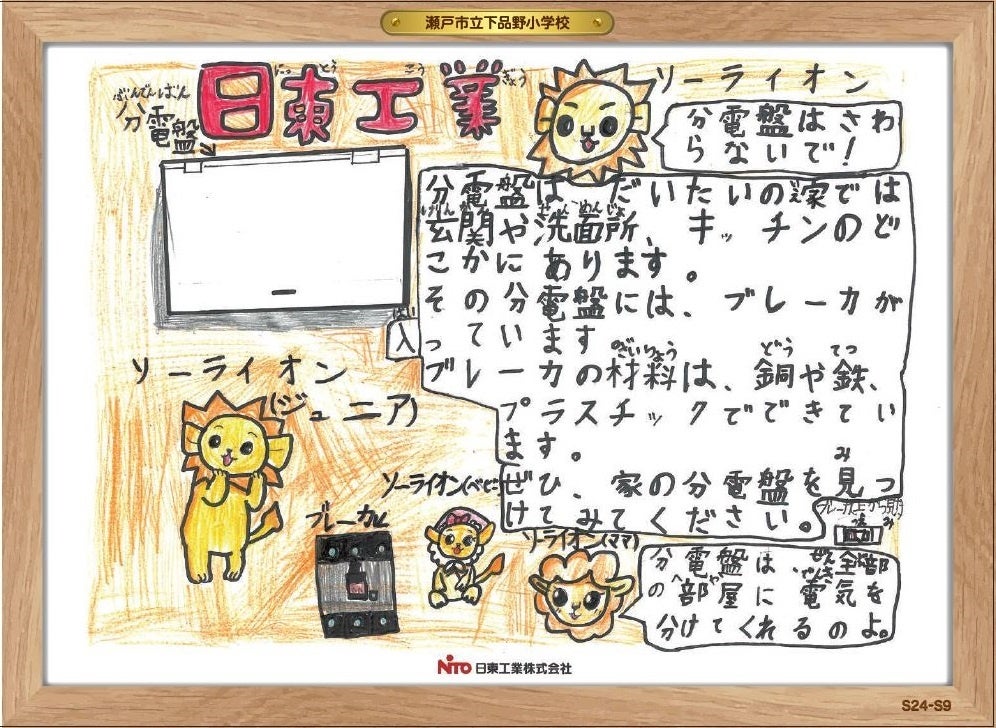 瀬戸市立下品野小学校
にっとうこうぎょう
日東工業
ぶんでんばん
分電盤
ソーライオン
分電盤はさわ
らないで!
分電盤は だいたいの家では
玄関や洗面所、キッチンのど
こかに あります。
その分電盤には、ブレーカが
入っています
ブレーカの材料は、銅や鉄、
プラスチックでできてい
ます。
ぜひ、家の分電盤を見つ
けてみてください。
ソーライオン
(ジュニア)
ソーライオン(ベビー
ブレーカ
ソーライオン(ママ)
分電盤は、全部
の部屋に電気を
分けてくれるのよ。
NITO 日東工業株式会社
S24-S9